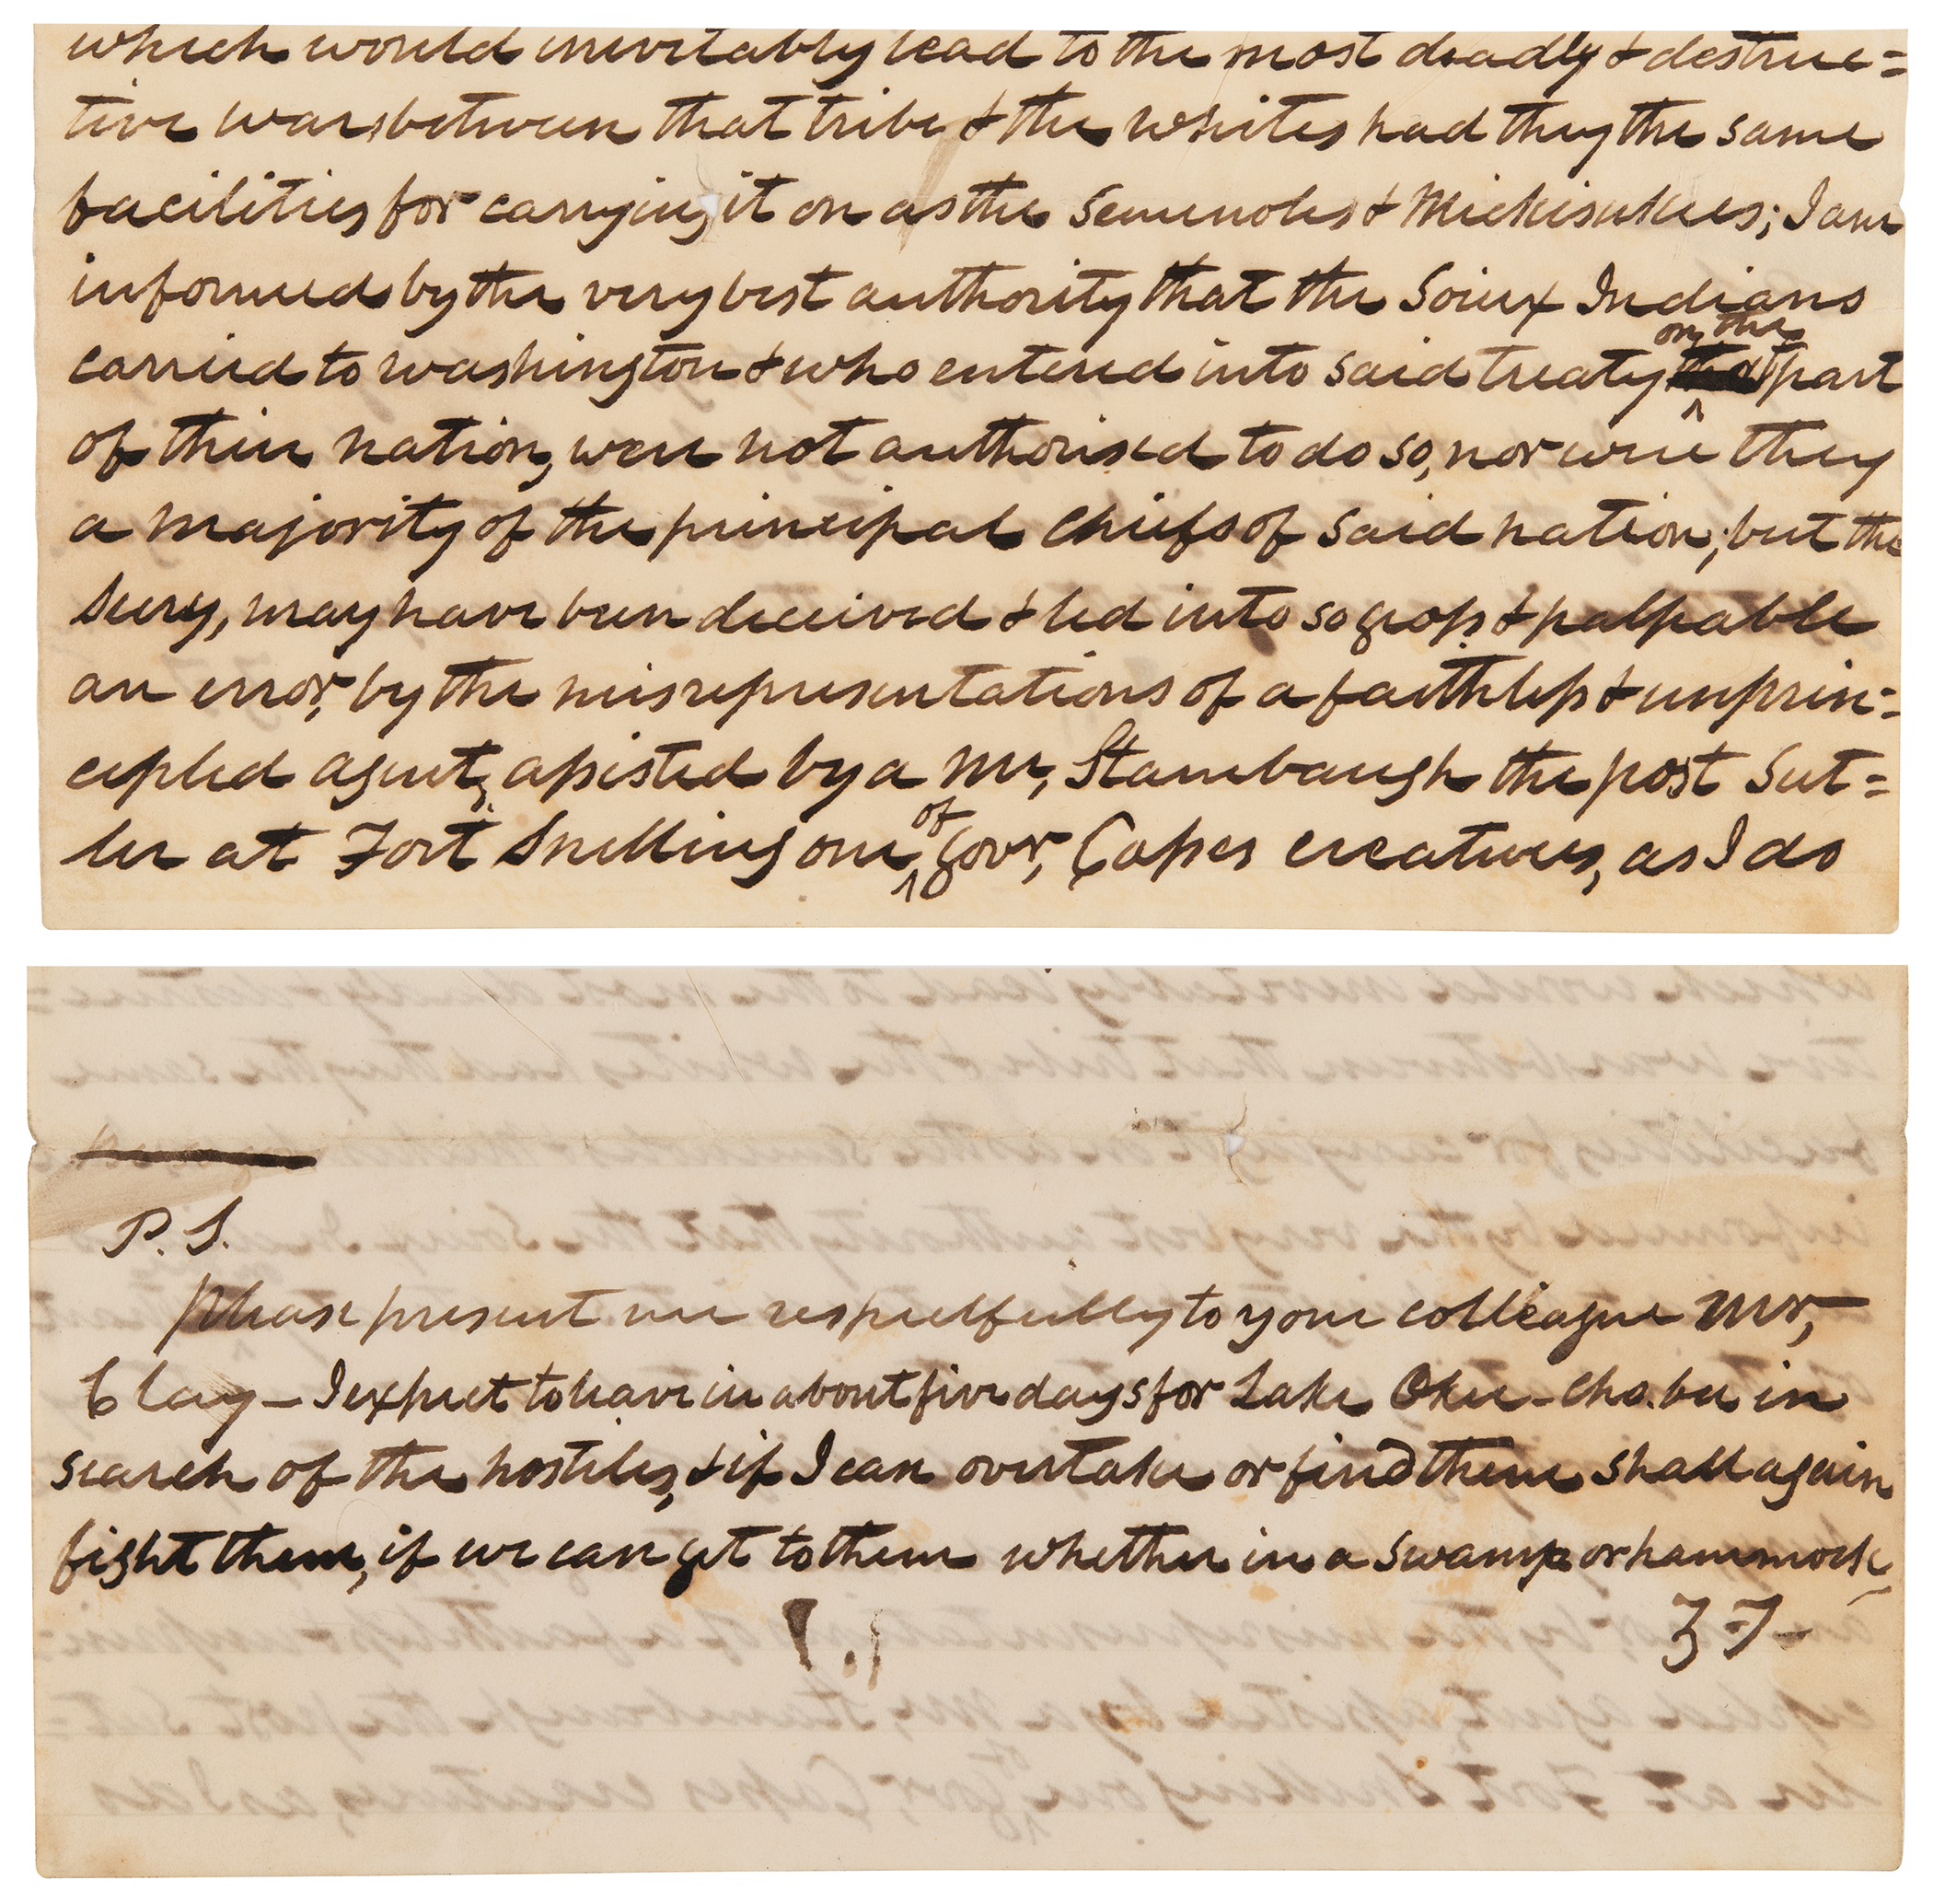 which would inevitably lead to the most deadly & destruc=
tive war, between that tribe & the whites had they the same
facilities for carrying it on as the Semenoles & Mickisukees; I am
informed by the very best authority that the Soiux Indians
carried to washington & who entered into said treaty on the part
of their nation, were not authorised to do so, nor were they
a majority of the principal chiefs of said nation; but the
Secry, may have been deceived & led into so gross & palpable
an error, by the misrepresentations of a faithless & unprin=
cepled agent, assisted by a Mr, Stambaugh the post Sut=
ler at Fort Snelling one of Govr, Casses creatures, as I do
P. S.
Please present me respectfully to your colleague Mr,
Clay – I expect to leave in about five days for Lake Okee-cho.bee in
search of the hostiles, & if I can overtake or find them shall again
fight them, if we can get to them whether in a swamp or hammock,
Z T–